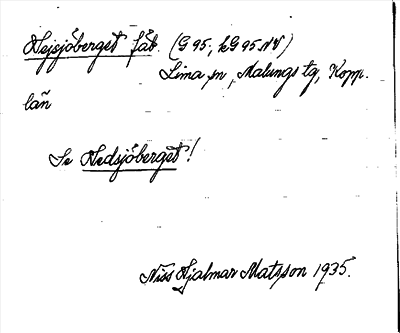 Hejsjöberget fäb. (G 95, kG 95 NV)
Lima sn, Malungs tg, Kopp.
län
Se Hedsjöberget!
Niss Hjalmar Matsson 1935.